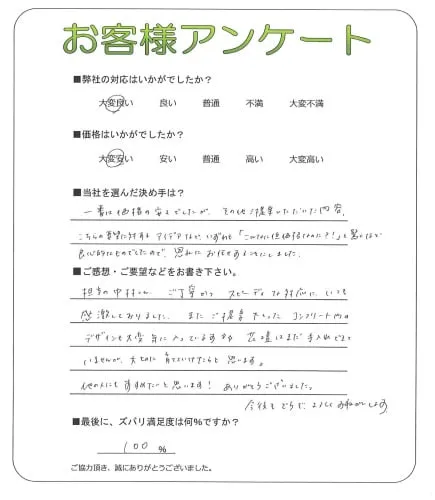 お客様アンケート
■弊社の対応はいかがでしたか?
大変良い 良い 普通 不満 大変不満
■価格はいかがでしたか?
大変安い 安い 普通 高い 大変高い
■当社を選んだ決め手は?
一番は価格の安さでしたが、その他ご提案いただいた内容、
こちらの要望に対するアイデアなど、いずれも「こんなに低価格なのに?!」と驚くほど
良心的なものでしたので、思わずお任せすることにしました。
■ご感想・ご要望などをお書き下さい。
担当の中村さん、ご丁寧かつスピーディな対応に、いつも
感激しておりました。またご提案下さったコンクリート内の
デザインも大変気に入っています。花壇はまだ手入れできて
いませんが、大切に育てていけたらと思います。
他の人にもすすめたいと思います!ありがとうございました。
今後ともどうぞよろしくお願いします
■最後に、ズバリ満足度は何%ですか?
100 %
ご協力頂き、誠にありがとうございました。